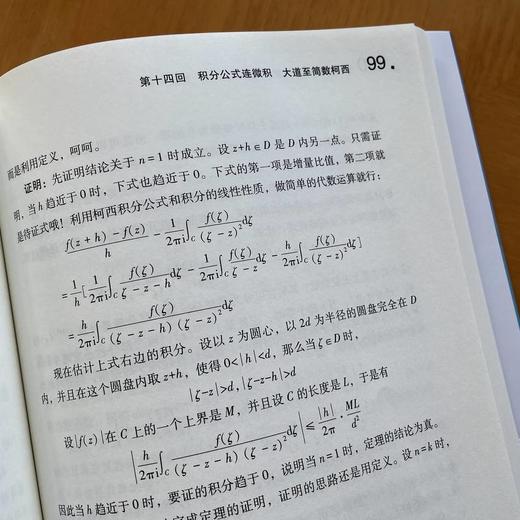 第十四回 积分公式连微积 大道至简数柯西 99.
而是利用定义，呵呵。
证明：先证明结论关于 n=1 时成立。设 z+h∈D 是 D 内另一点。只需证
明，当 h 趋近于 0 时，下式也趋近于 0。下式的第一项是增量比值，第二项就
是待证式哦！利用柯西积分公式和积分的线性性质，做简单的代数运算就行：
\frac{f(z+h)-f(z)}{h} - \frac{1}{2πi}∫_C \frac{f(ζ)}{(ζ-z)^2}dζ
=\frac{1}{h}[\frac{1}{2πi}∫_C \frac{f(ζ)}{ζ-z-h}dζ - \frac{1}{2πi}∫_C \frac{f(ζ)}{ζ-z}dζ - \frac{h}{2πi}∫_C \frac{f(ζ)}{(ζ-z)^2}dζ]
=\frac{h}{2πi}∫_C \frac{f(ζ)}{(ζ-z-h)(ζ-z)^2}dζ
现在估计上式右边的积分。设以 z 为圆心，以 2d 为半径的圆盘完全在 D
内，并且在这个圆盘内取 z+h，使得 0<|h|<d，那么当 ζ∈D 时，
|ζ-z|>d,|ζ-z-h|>d
设|f(z)|在 C 上的一个上界是 M，并且设 C 的长度是 L，于是有
|\frac{h}{2πi}∫_C \frac{f(ζ)}{(ζ-z-h)(ζ-z)^2}dζ| ⩽ \frac{|h|}{2π}·\frac{ML}{d^2}
因此当 h 趋近于 0 时，要证的积分趋于 0，说明当 n=1 时，定理的结论为真。
完成定理的证明，证明的思路还是用定义。设 n=k 时，